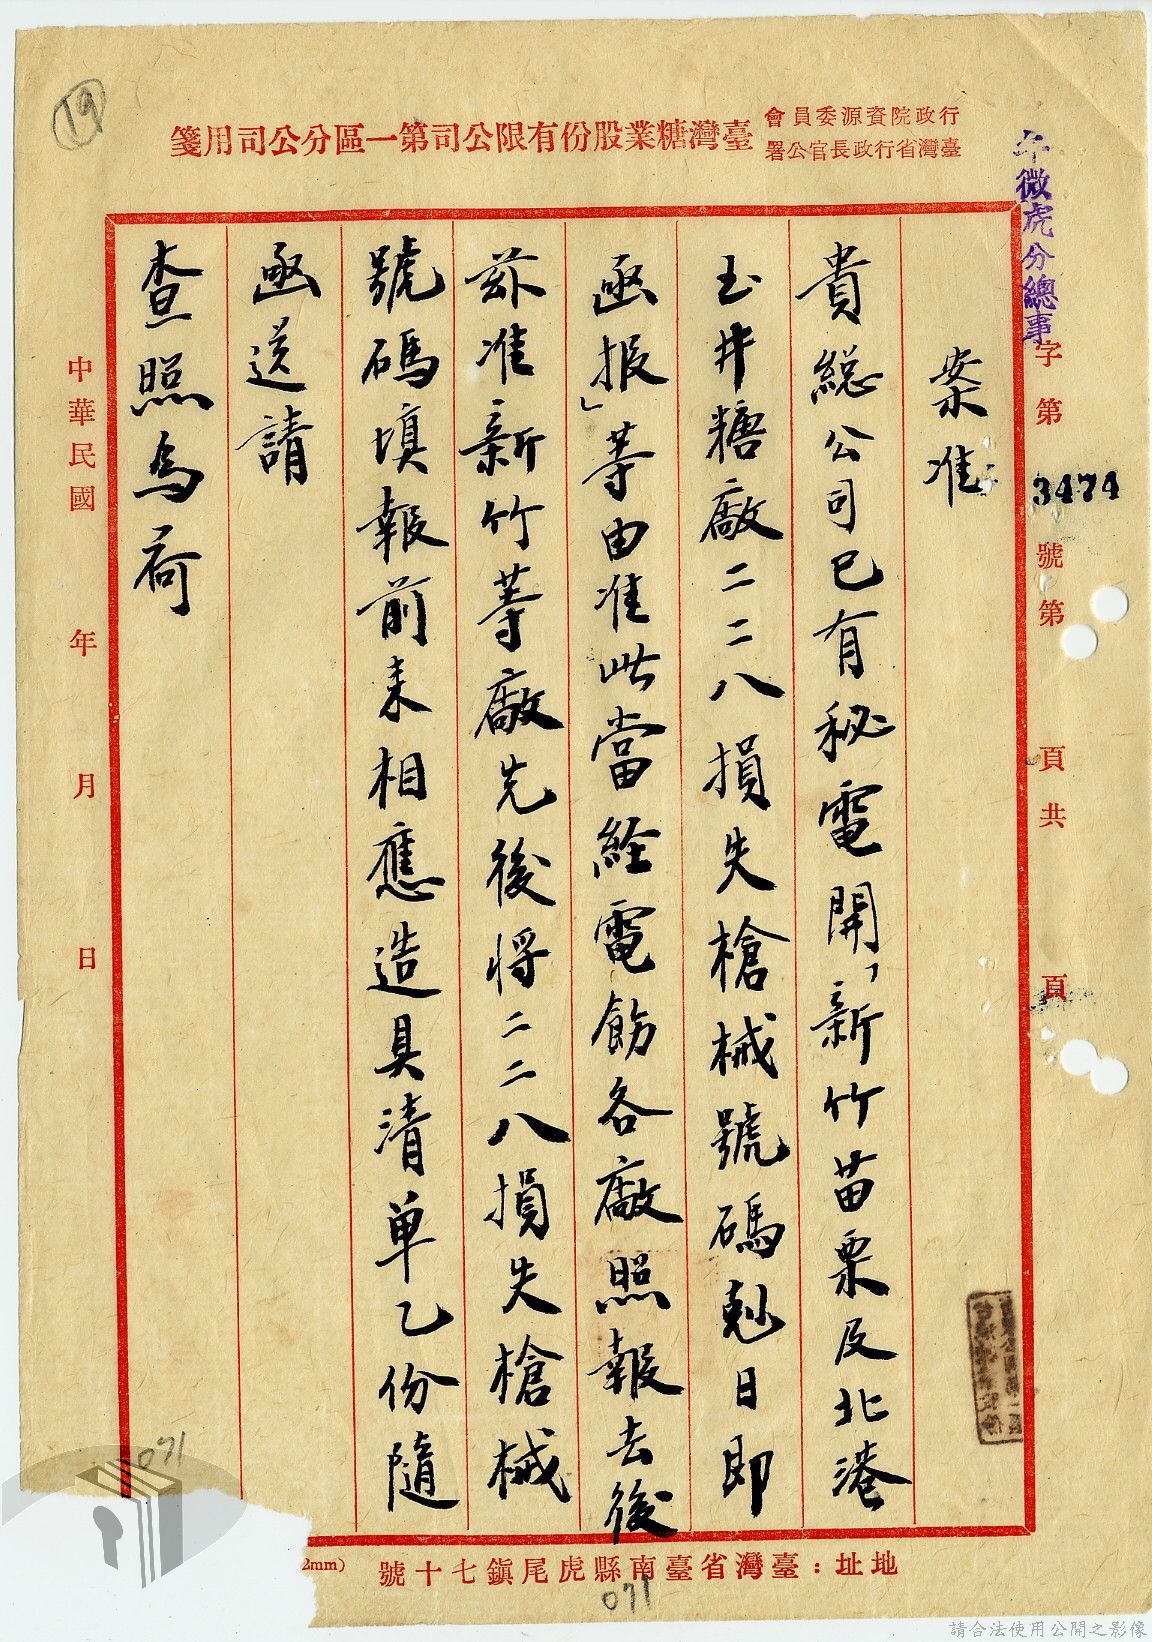 ⑲
行政院資源委員會
臺灣省行政長官公署
臺灣糖業股份有限公司第一區分公司用箋
午微虎分總事字第3474號第 頁共 頁
案准
貴総公司巳有秘電開「新竹苗栗及北港
玉井糖廠二二八損失槍械號碼剋日即
函报」等由准此當経電飭各廠照報去後
兹准新竹等廠先後将二二八損失槍械
號碼填報前来相應造具清单乙份隨
函送請
查照為荷
中華民國 年 月 日
071
地址：臺灣省臺南縣虎尾鎮七十號
2mm)
071
請合法使用公開之影像